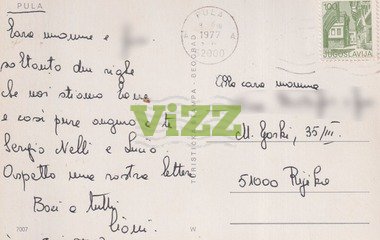 PULA
Cara mamma e
soltanto due righe
che noi stiamo bene
e così pure auguro a te
Sergio Nelli e Luca
Aspetto una vostra lettera
Baci a tutti
7007
TURISTIČKA ŠTAMPA - BEOGRAD
W
PULA
1977
52000
100
JUGOSLAVIJA
Alla cara mamma
M. Gorki, 35/III.
51000 Rijeka
ViZZ